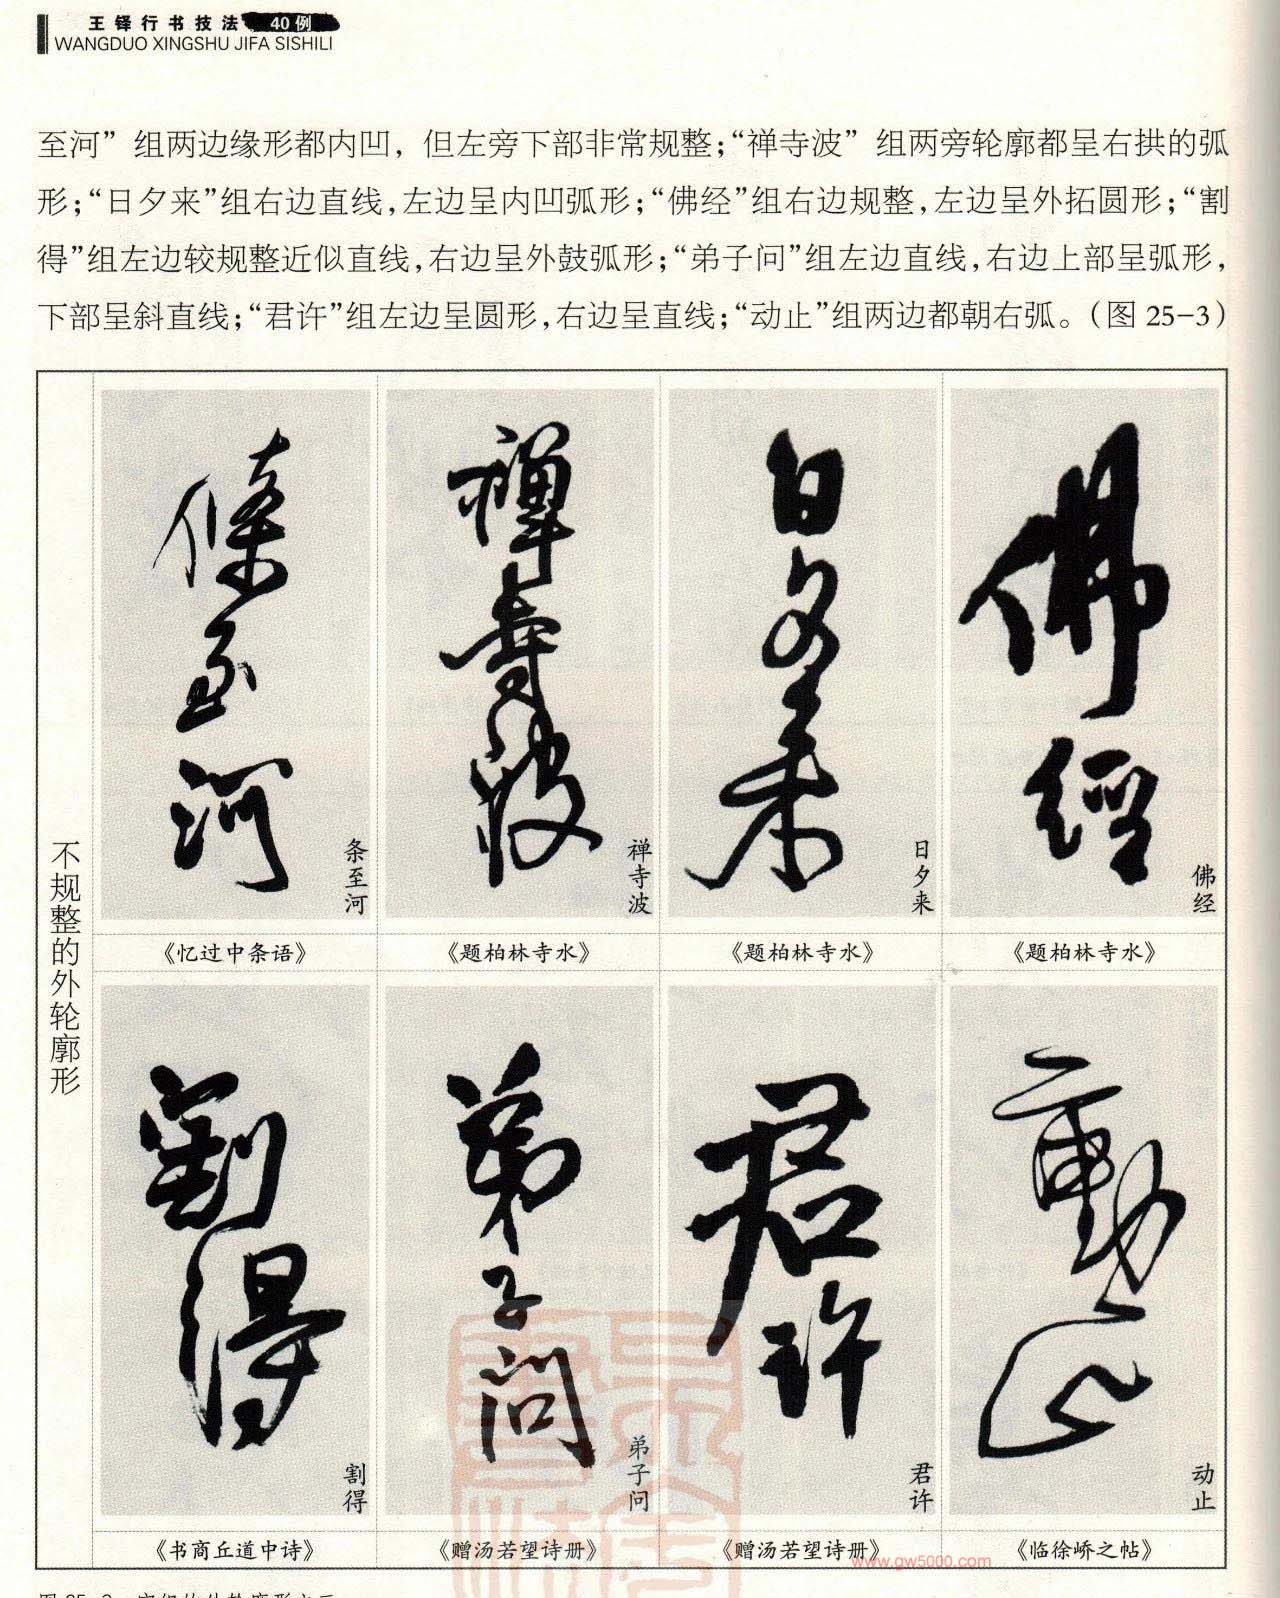 王铎行书技法 40例
WANGDUO XINGSHU JIFA SISHILI
至河”组两边缘形都内凹，但左旁下部非常规整；“禅寺波”组两旁轮廓都呈右拱的弧
形；“日夕来”组右边直线，左边呈内凹弧形；“佛经”组右边规整，左边呈外拓圆形；“割
得”组左边较规整近似直线，右边呈外鼓弧形；“弟子问”组左边直线，右边上部呈弧形，
下部呈斜直线；“君许”组左边呈圆形，右边呈直线；“动止”组两边都朝右弧。（图 25-3）
不规整的外轮廓形
條至河
条至河
禪寺波
禅寺波
日夕来
日夕来
佛經
佛经
《忆过中条语》
《题柏林寺水》
《题柏林寺水》
《题柏林寺水》
割得
割得
弟子问
弟子问
君許
君许
動止
动止
《书商丘道中诗》
《赠汤若望诗册》
《赠汤若望诗册》
《临徐峤之帖》
www.gw5000.com